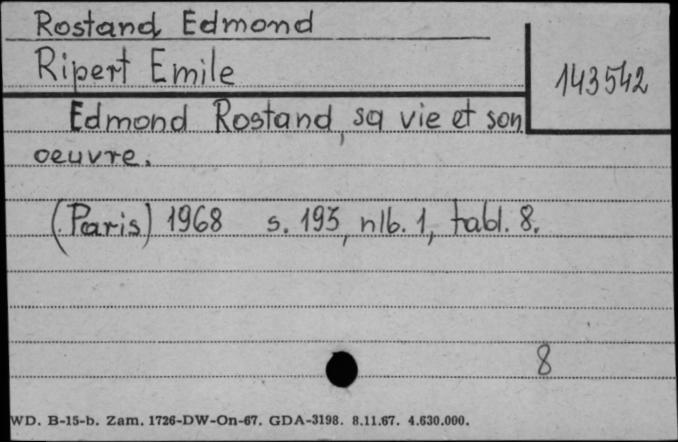 Rostand Edmond
Ripert Emile
143542
Edmond Rostand, sa vie et son
oeuvre.
(Paris) 1968 s. 195, nlb. 1, tabl. 8.
8
WD. B-15-b. Zam. 1726-DW-On-67. GDA-3198. 8.11.67. 4.630.000.